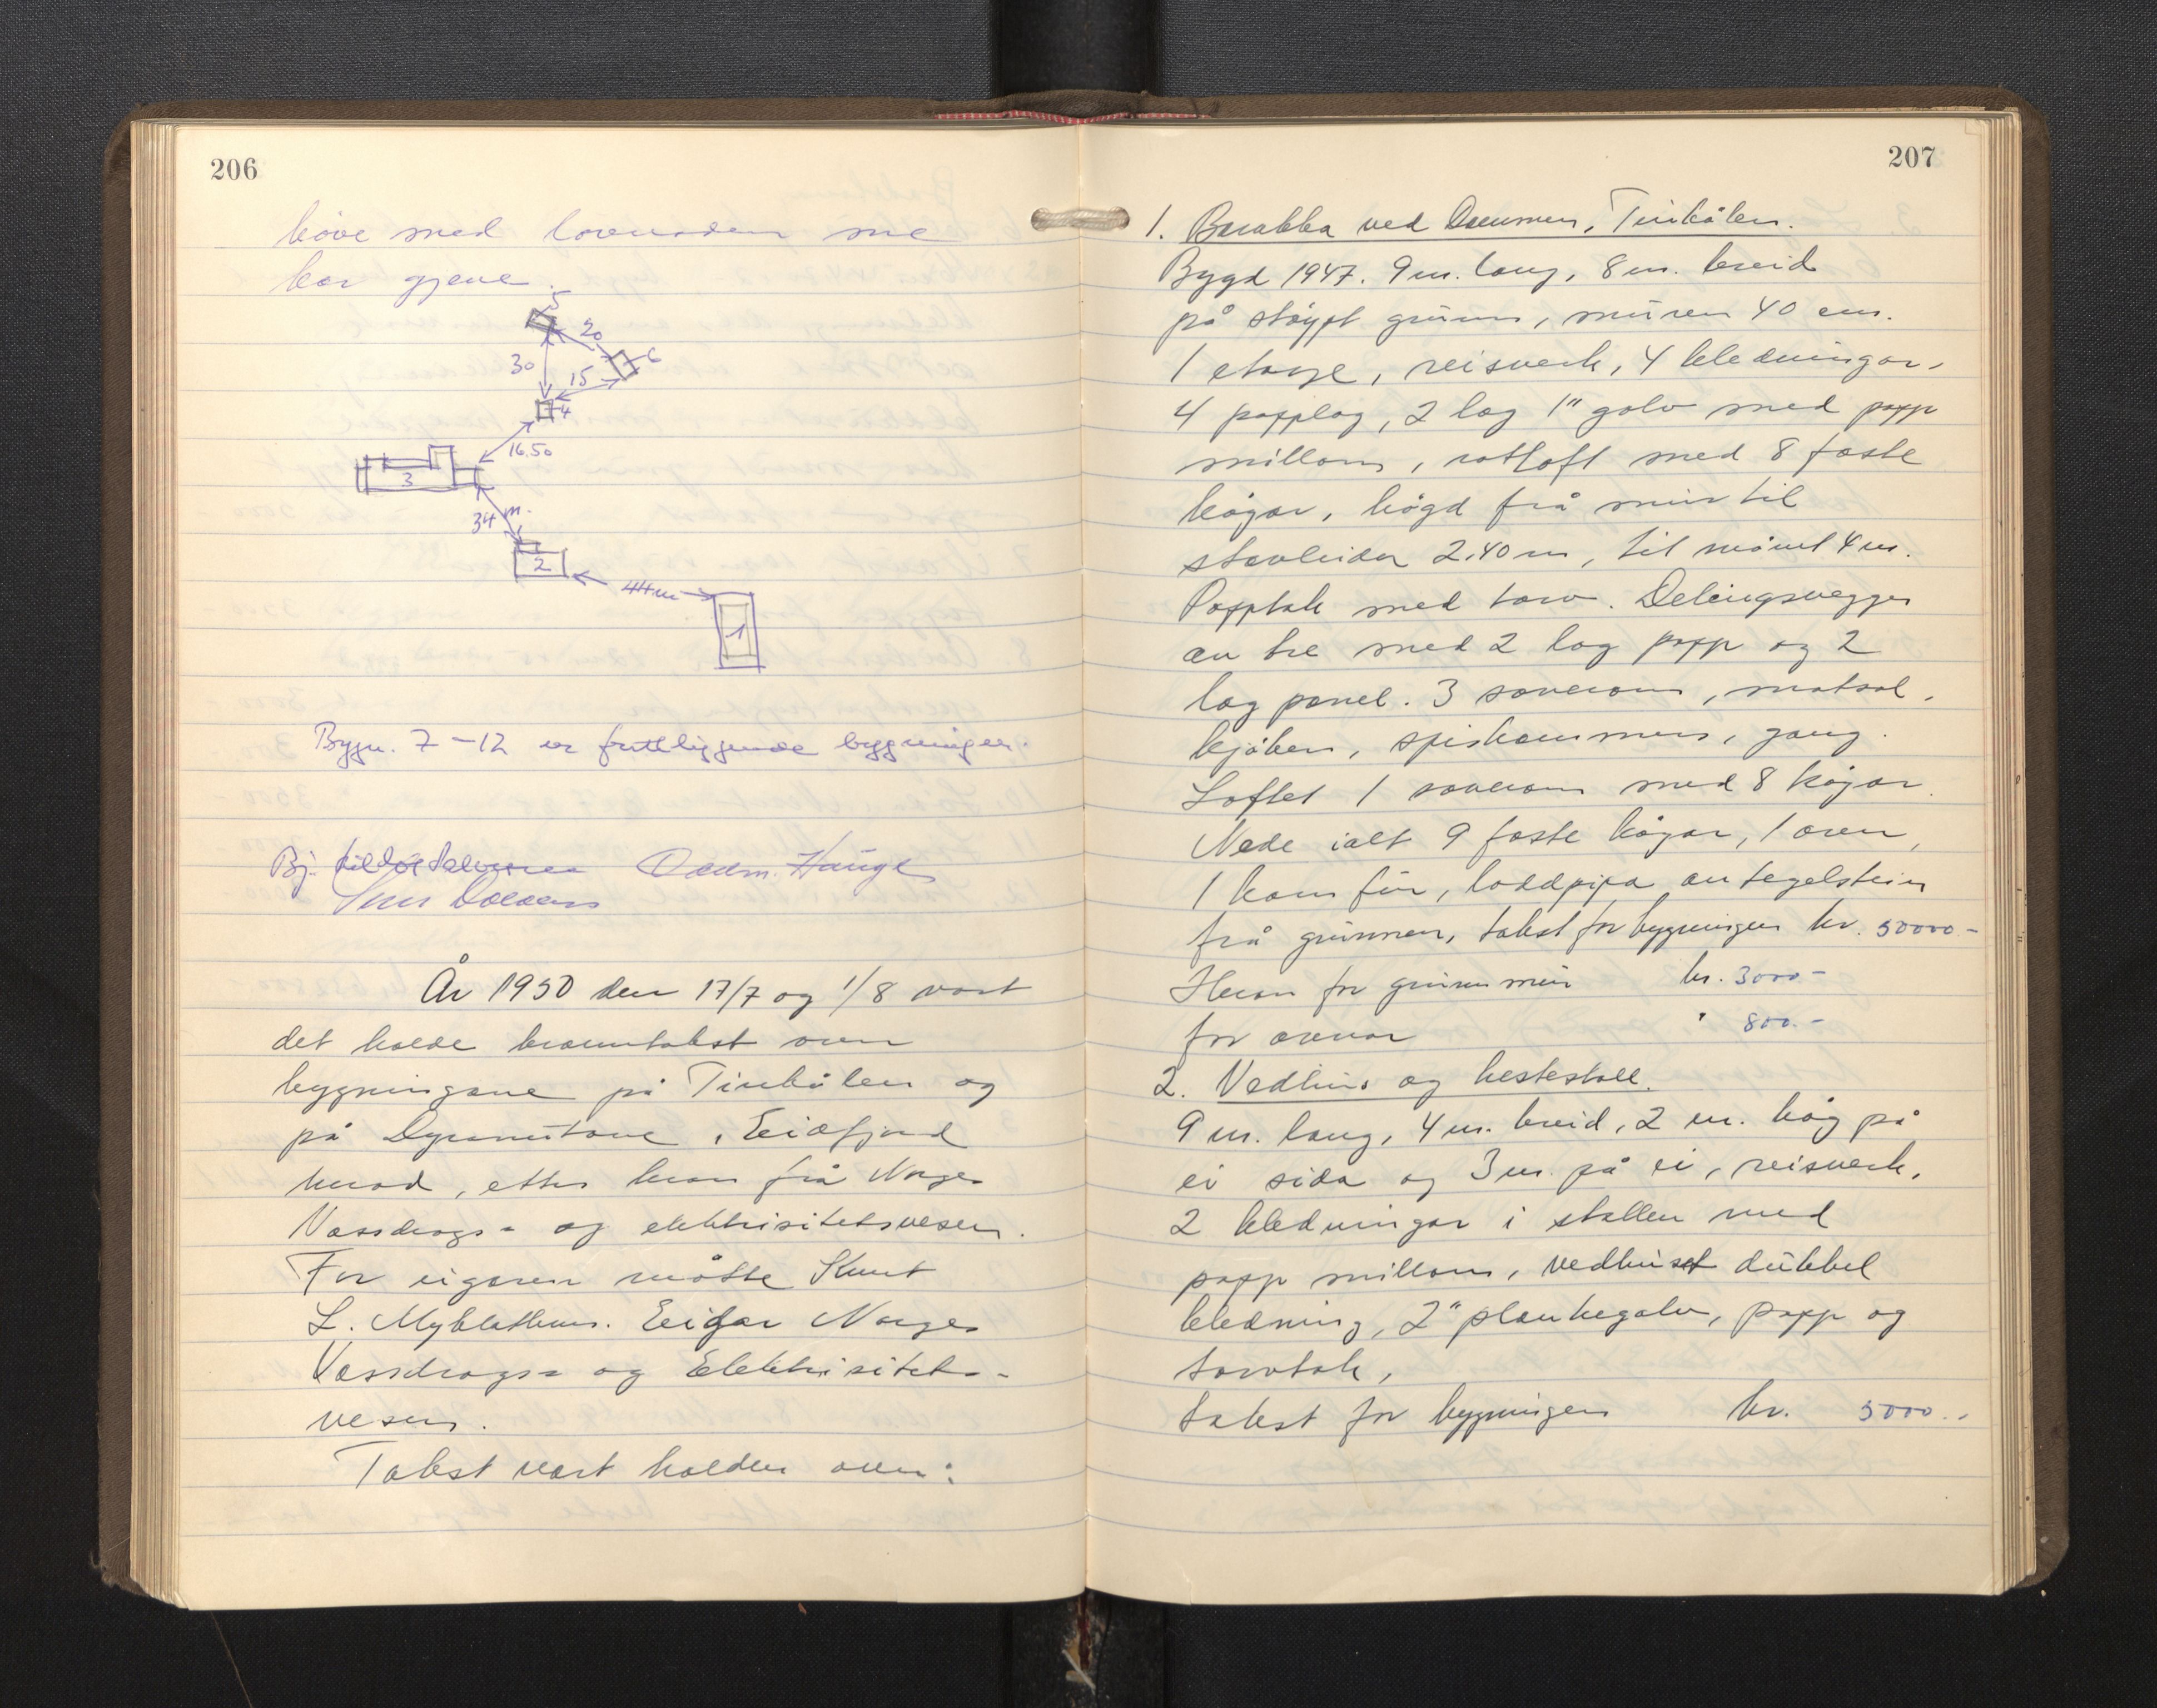 206
høve med lovnaden me
har gjeve.
5
20
6
30
15
4
16.50
3
34 m.
2
44 m
1
Bygn. 7-12 er frittliggende bygninger.
Bj. Oddm. Hauge
År 1950 den 17/7 og 1/8 vart
det halde branntakst over
bygningane på Tinhølen og
på Dyranutane, Eidfjord
herad, etter krav frå Norges
Vassdrags- og elektrisitetsvesen.
For eigaren møtte Knut
L. Myklathun. Eigar Norges
Vassdrags- og Elektrisitets-
vesen.
Takst vart halden over:
207
1. Barakka ved Dammen, Tinhølen.
Bygd 1947. 9 m. lang, 8 m. breid
på støypt grunn, muren 40 cm.
1 etasje, reisverk, 4 kledningar,
4 papplag, 2 lag 1" golv med papp
millom, loft med 8 faste
køyar, høgd frå mur til
2.40 m, til mønet 4 m.
Papptak med torv. Delingsvegger
av tre med 2 lag papp og 2
lag panel. 3 soverom, matsal,
kjøken, spiskammer, gang.
Loftet 1 soverom med 8 køyar.
Nede ialt 9 faste køyar, 1 ovn,
1 komfyr, pipa av tegelstein
frå grunnen, takst for bygningen kr. 50000-
Herav for grunnmur kr. 3000-
for ovnar " 800.-
2. Vedhus og hestestall.
9 m. lang, 4 m. breid, 2 m. høg på
ei sida og 3 m. på ei, reisverk,
2 kledningar i stallen med
papp millom, vedhuset dubbel
kledning, 2" plankegolv, papp og
torvtak,
takst for bygningen kr. 5000.-